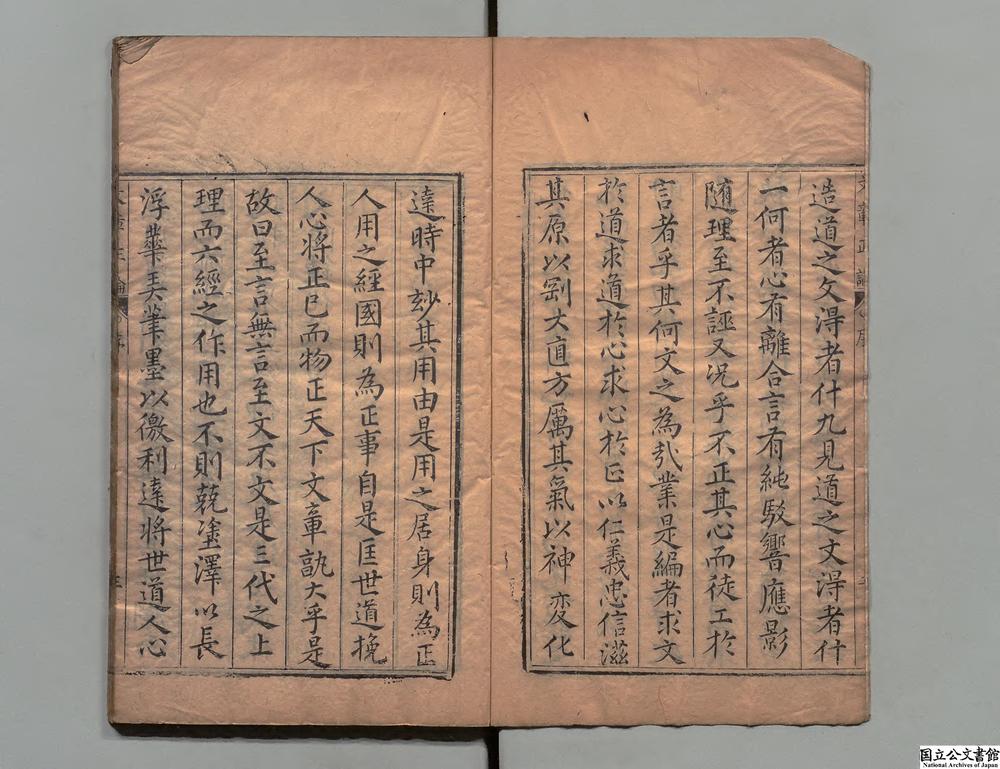 造道之文得者什九見道之文得者什
一何者心有離合言有純駁響應影
随理至不誣又况乎不正其心而徒工於
言者乎其何文之為㢤業是編者求文
於道求道於心求心於正以仁義忠信滋
其原以剛大直方厲其氣以神变化
達時中玅其用由是用之居身則為正
人用之經國則為正事自是匡世道挽
人心將正己而物正天下文章孰大乎是
故曰至言無言至文不文是三代之上
理而六經之作用也不則兢塗澤以長
浮華美筆墨以徼利達將世道人心
国立公文書館
National Archives of Japan